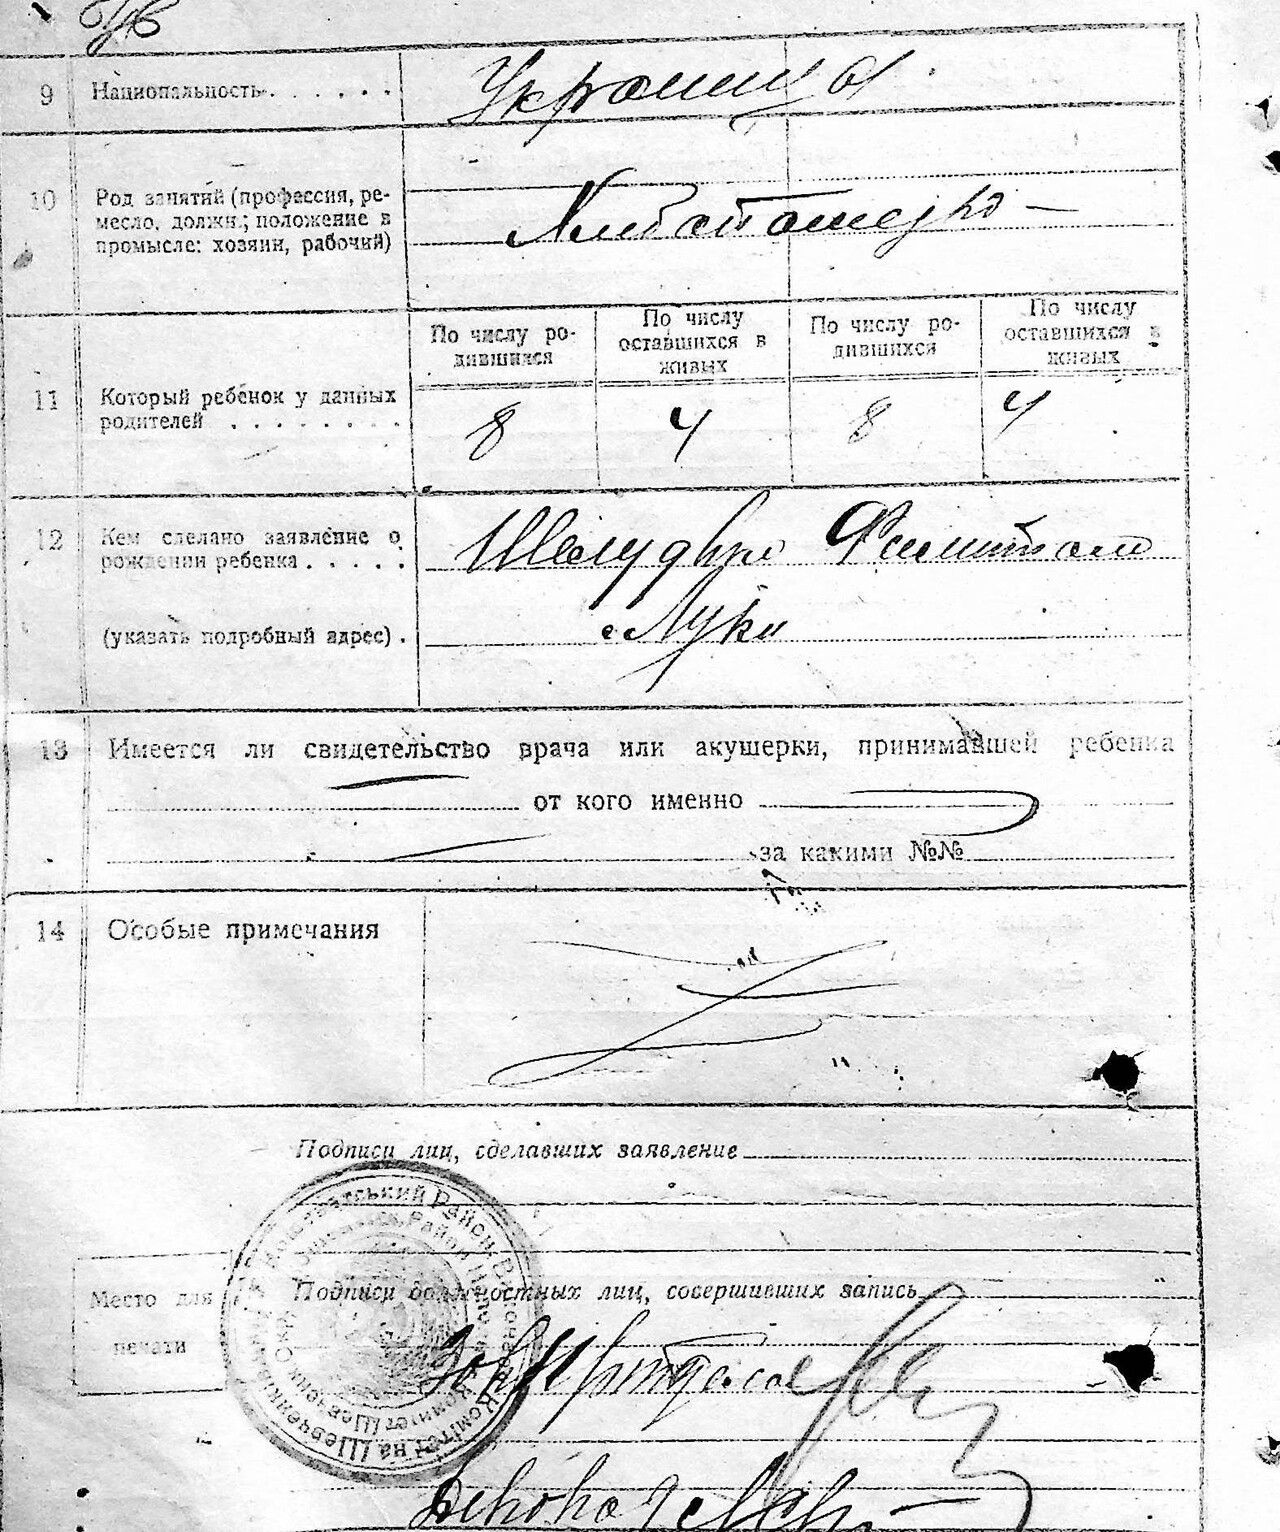 9 Национальность . . . . . . Украинцы
10 Род занятий (профессия, ре-
месло, должн.; положение в
промысле: хозяин, рабочий)
Хлебопашество
По числу ро-
дившихся
По числу
оставшихся в
живых
По числу ро-
дившихся
По числу
оставшихся в
живых
11 Который ребенок у данных
родителей . . . . . . . .
8 4 8 4
12 Кем сделано заявление о
рождении ребенка . . . . .
(указать подробный адрес) .
с Луки
13 Имеется ли свидетельство врача или акушерки, принимавшей ребенка
от кого именно
за какими №№
14 Особые примечания
Подписи лиц, сделавших заявление
Место для
печати
Подписи должностных лиц, совершивших запись
Район. Виконавч. Комітет на Шевченківщині